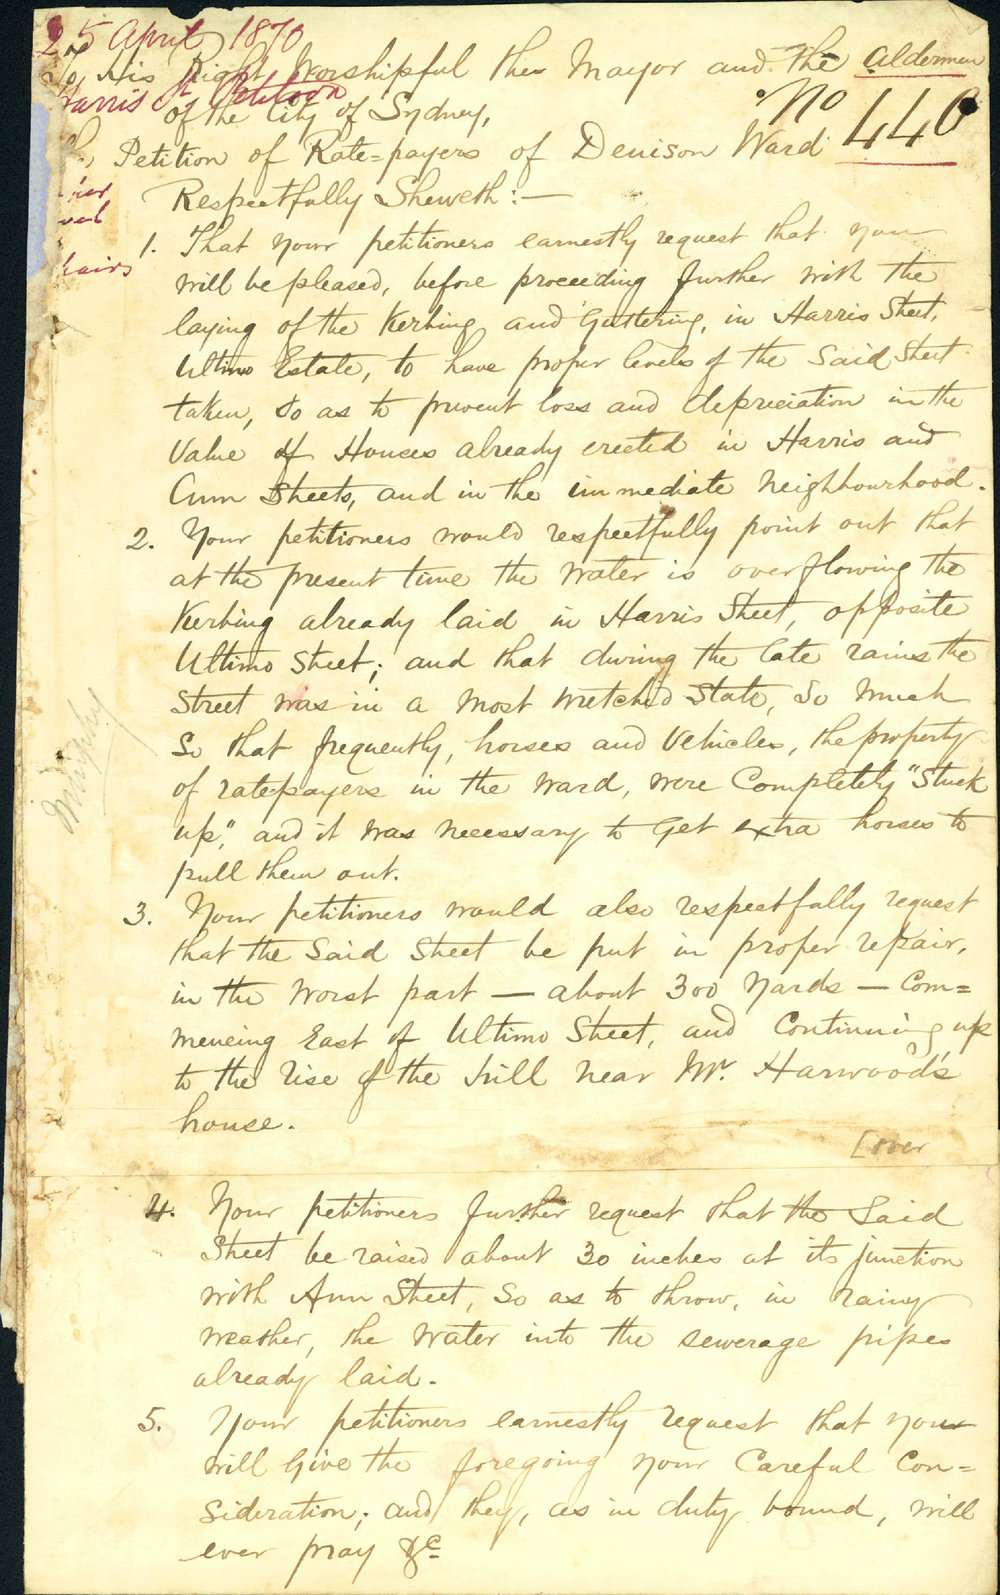 25 April 1870
To His Right Worshipful the Mayor and the Aldermen
Harris St Petition
of the City of Sydney,
No 440
Petition of Rate=payers of Denison Ward
Respectfully Sheweth:—
1. That your petitioners earnestly request that you
will be pleased, before proceeding further with the
laying of the Kerbing and Guttering, in Harris Street,
Ultimo Estate, to have proper levels of the Said Street
taken, so as to prevent loss and depreciation in the
Value of Houses already erected in Harris and
Ann Streets, and in the immediate neighbourhood.
2. Your petitioners would respectfully point out that
at the present time the water is overflowing the
Kerbing already laid in Harris Street, opposite
Ultimo Street; and that during the late rains the
Street was in a most wretched State, So much
So that frequently, horses and Vehicles, the property
of ratepayers in the ward, were Completely "Stuck
up," and it was necessary to get extra horses to
pull them out.
Murphy
3. Your petitioners would also respectfully request
that the Said Street be put in proper repair,
in the worst part — about 300 yards — Com=
mencing East of Ultimo Street, and Continuing up
to the rise of the hill near Mr. Harwood's
house.
[over
4. Your petitioners further request that the Said
Street be raised about 30 inches at its junction
with Ann Street, So as to throw, in rainy
weather, the water into the sewerage pipes
already laid.
5. Your petitioners earnestly request that you
will give the foregoing your Careful Con=
sideration; and they, as in duty bound, will
ever pray &c